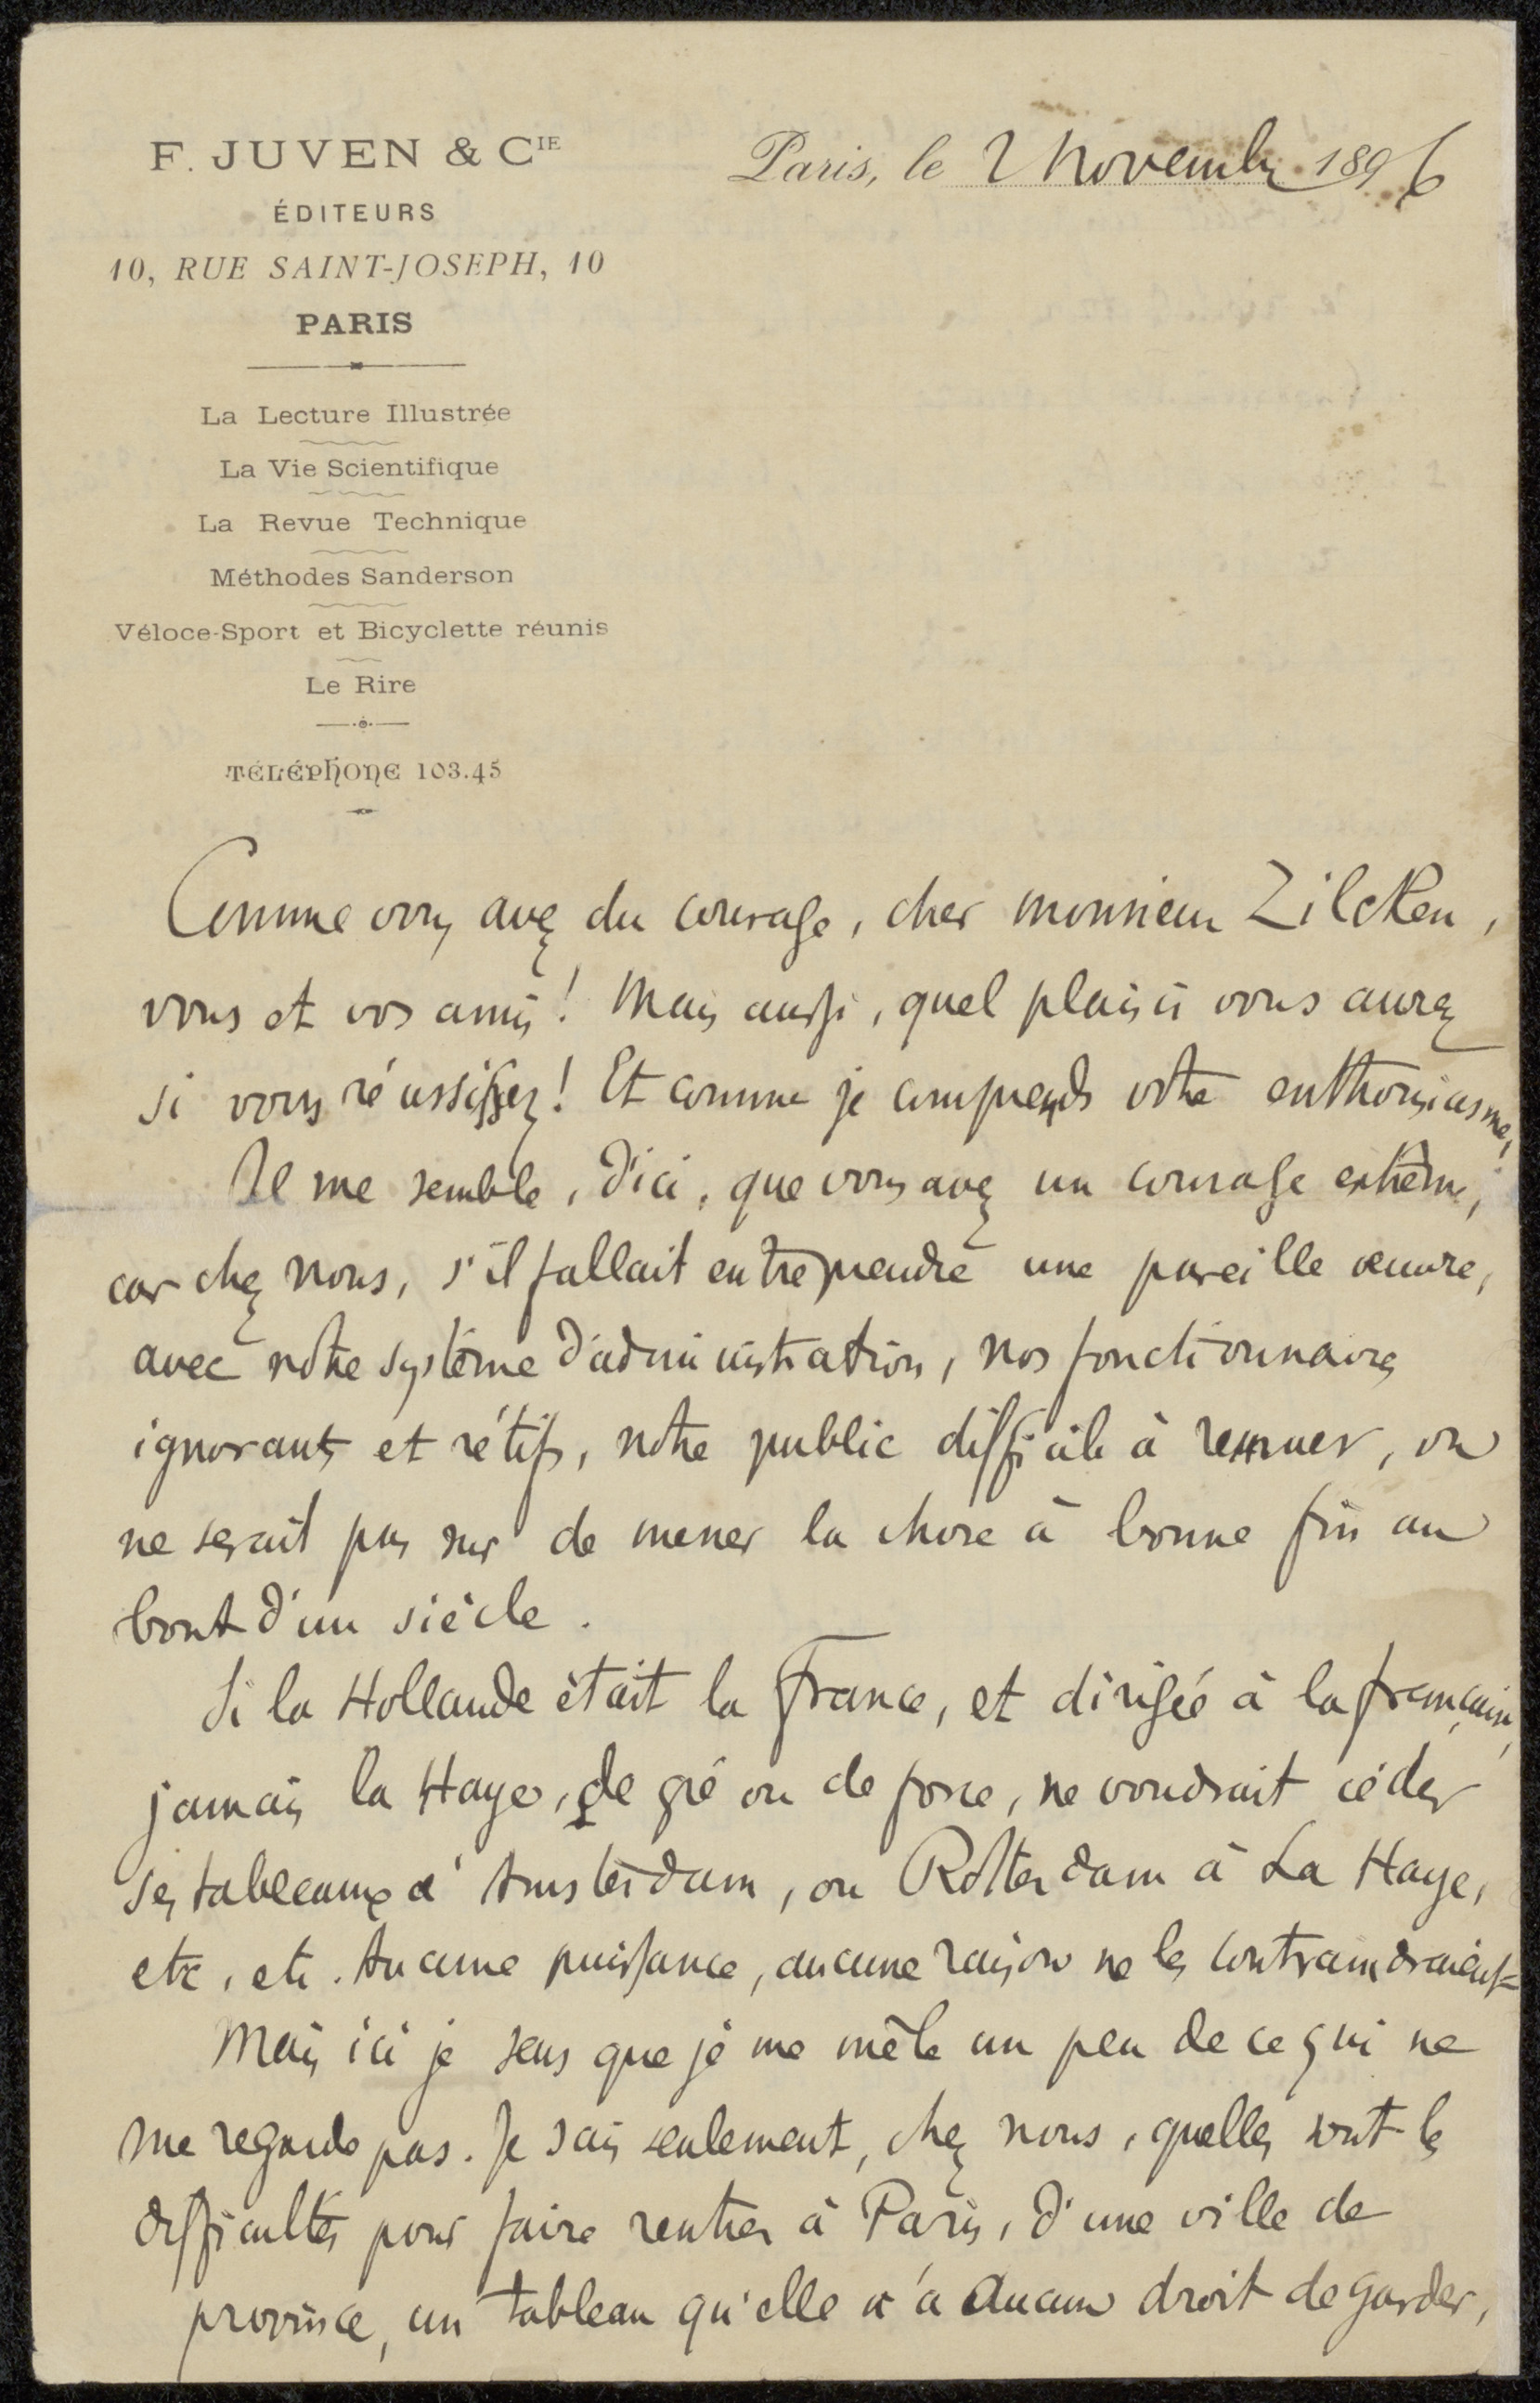 F. JUVEN & CIE
ÉDITEURS
10, RUE SAINT-JOSEPH, 10
PARIS
La Lecture Illustrée
La Vie Scientifique
La Revue Technique
Méthodes Sanderson
Véloce-Sport et Bicyclette réunis
Le Rire
TÉLÉPHONE 103.45
Paris, le 2 Novembre 1896
Comme vous avez du courage, cher monsieur Zilcken,
vous et vos amis! Mais aussi, quel plaisir vous aurez
si vous réussissez! Et comme je comprends votre enthousiasme,
Il me semble, d'ici, que vous avez un courage extrême,
car chez nous, s'il fallait entreprendre une pareille œuvre,
avec notre système d'administration, nos fonctionnaires
ignorants et rétifs, notre public difficile à remuer, on
ne serait pas sur de mener la chose à bonne fin au
bout d'un siècle.
Si la Hollande était la France, et dirigée à la française,
jamais la Haye, de gré ou de force, ne voudrait céder
ses tableaux à Amsterdam, ou Rotterdam à La Haye,
etc, etc. Aucune puissance, aucune raison ne les contraindraient
Mais ici je sens que je me mêle un peu de ce qui ne
me regarde pas. Je sais seulement, chez nous, quelles sont les
difficultés pour faire rentrer à Paris, d'une ville de
province, un tableau qu'elle n'a aucun droit de garder,